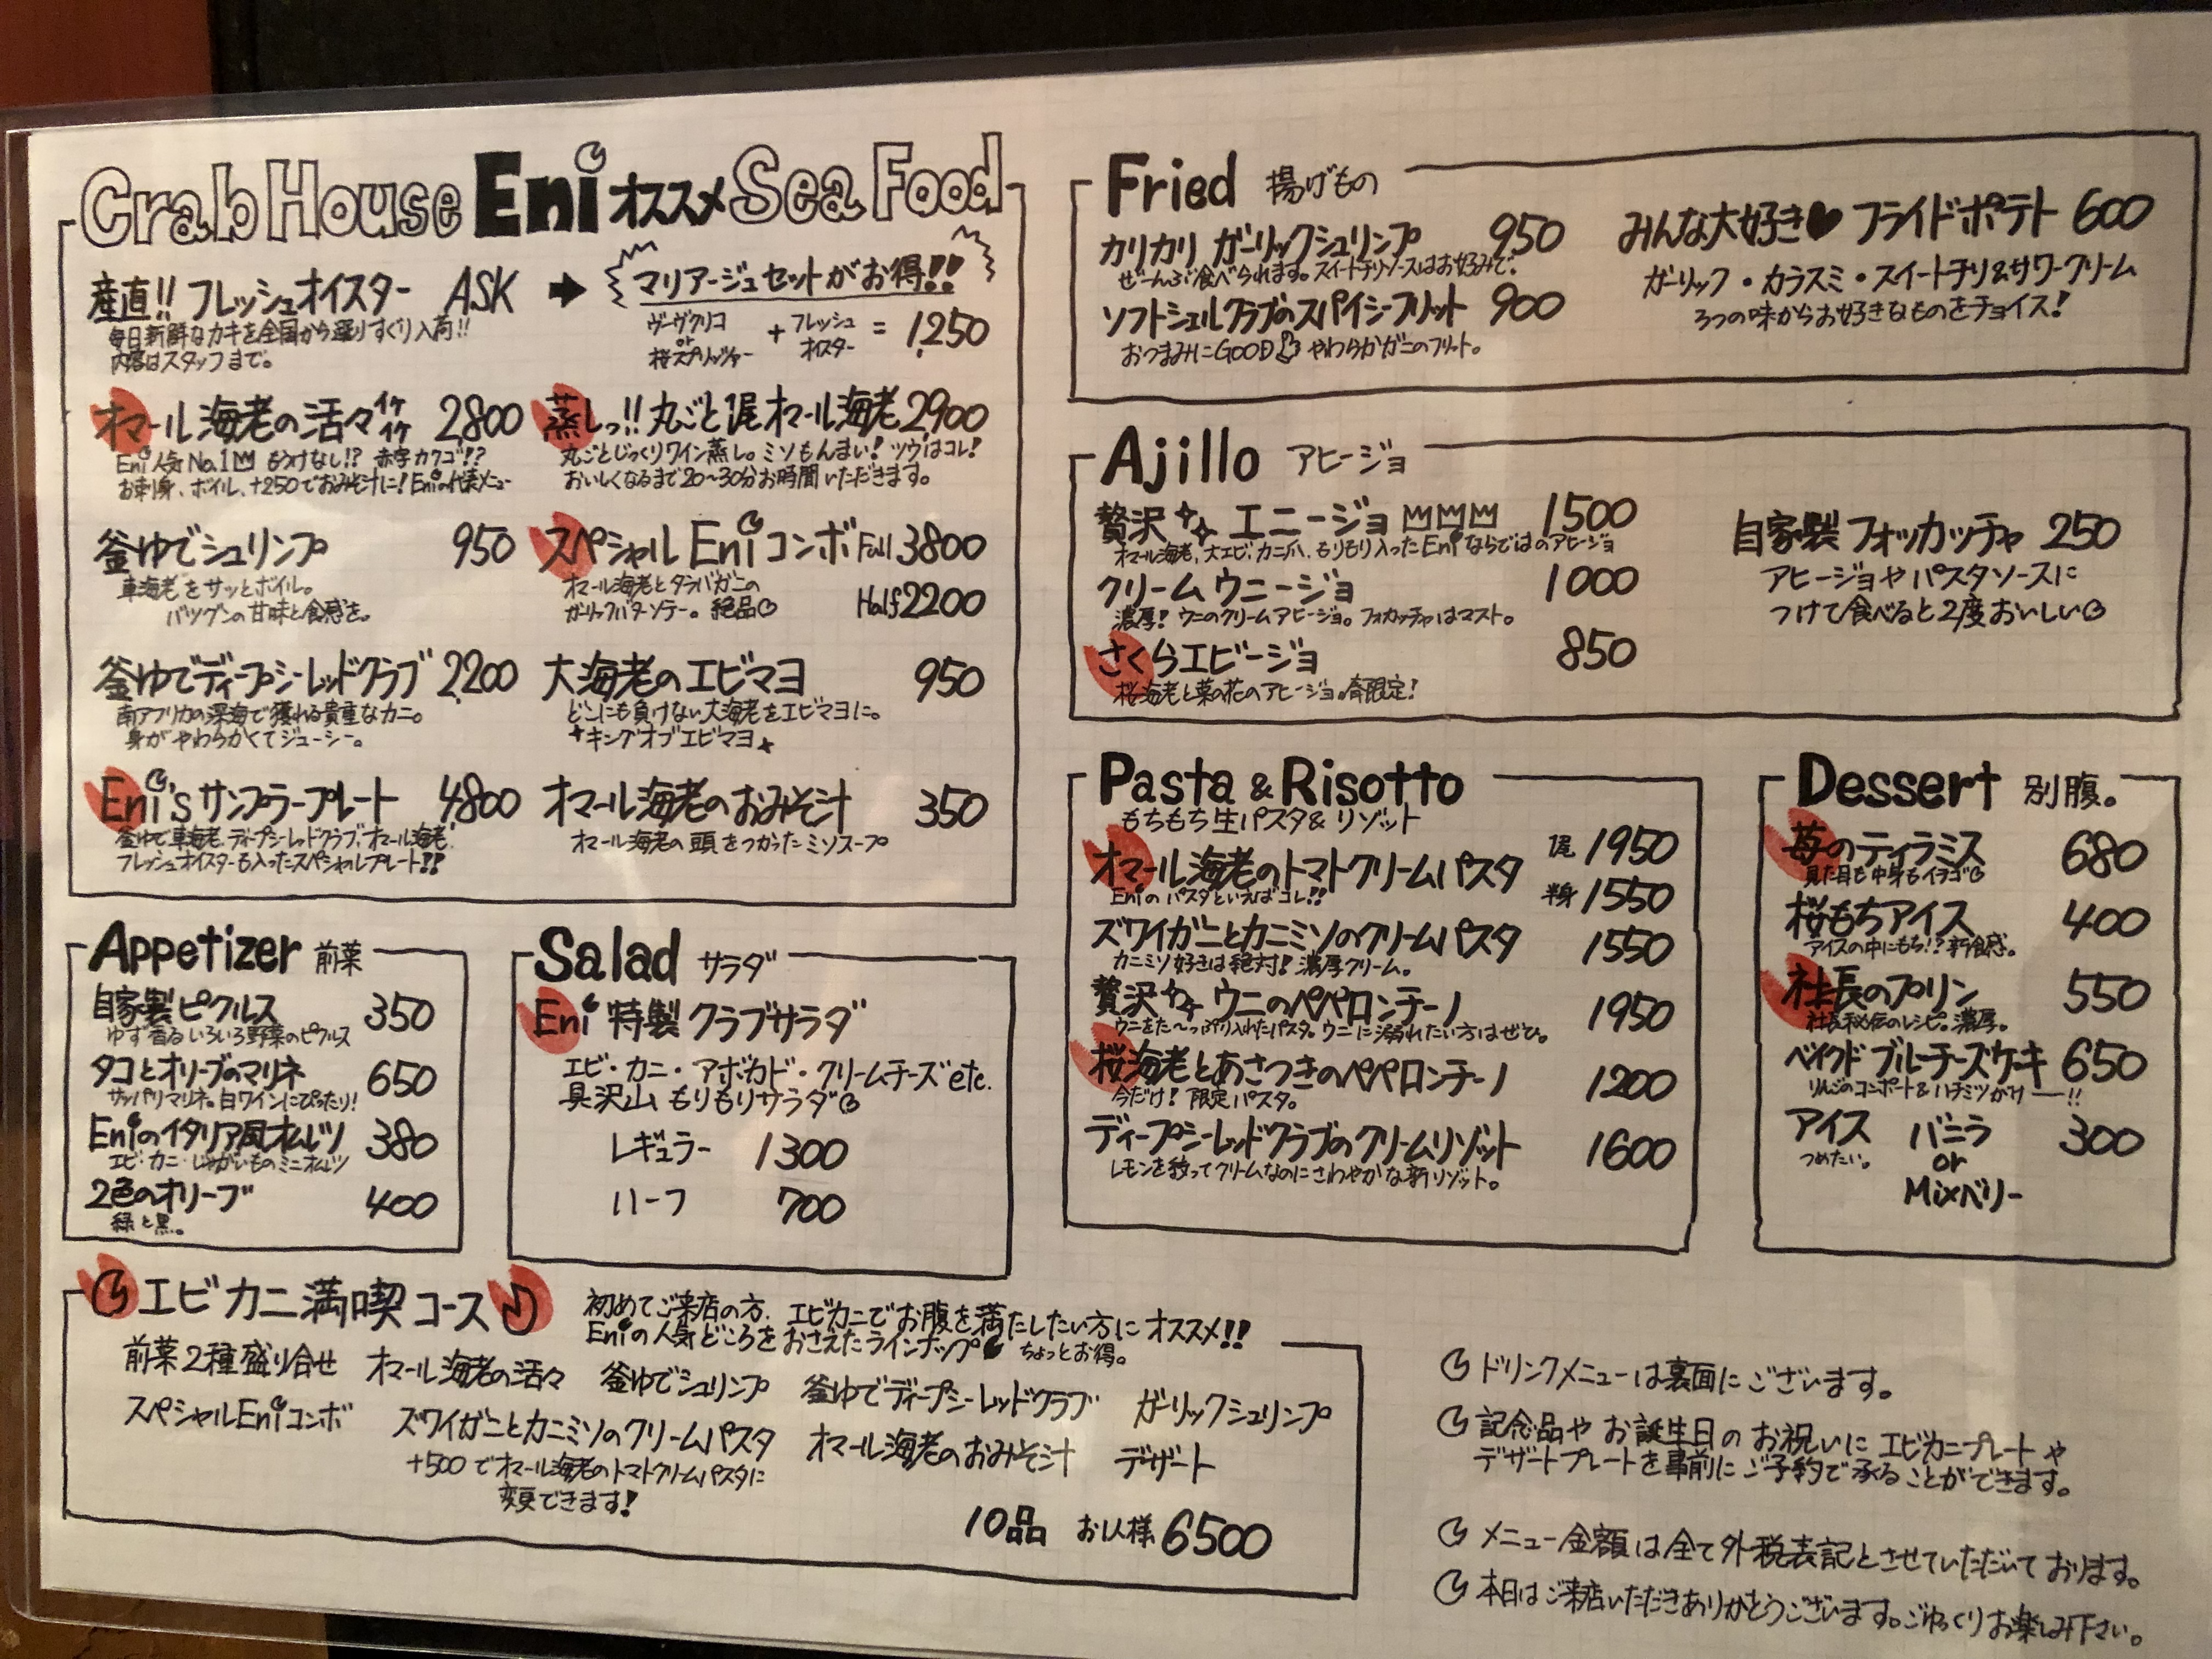 Crab House Eni オススメ Sea Food
産直!! フレッシュオイスター ASK → マリアージュセットがお得!!
毎日新鮮なカキを全国から選りすぐり入荷!!
内容はスタッフまで。
ヴーヴクリコ or 桜スプリッツァー + フレッシュオイスター = 1,250
オマール海老の活々 イケイケ 2,800
Eni人気No.1 もうけなし!? 赤字カクゴ!?
お刺身、ボイル、+250でおみそ汁に! Eniの代表メニュー
蒸しっ!! 丸ごと1尾オマール海老 2,900
丸ごとじっくりワイン蒸し。ミソもんまい! ツウはコレ!
おいしくなるまで20〜30分お時間いただきます。
釜ゆでシュリンプ 950
車海老をサッとボイル。
バツグンの甘味と食感を。
スペシャル Eni コンボ Full 3800
オマール海老とタラバガニの
ガーリックバターソテー。絶品
Half 2200
釜ゆでディープシーレッドクラブ 2,200
南アフリカの深海で獲れる貴重なカニ。
身がやわらかくてジューシー。
大海老のエビマヨ 950
どこにも負けない大海老をエビマヨに。
キングオブエビマヨ
Eni's サンプラープレート 4800
釜ゆで車海老、ディープシーレッドクラブ、オマール海老、
フレッシュオイスターも入ったスペシャルプレート!!
オマール海老のおみそ汁 350
オマール海老の頭をつかったミソスープ
Appetizer 前菜
自家製ピクルス 350
ゆず香るいろいろ野菜のピクルス
タコとオリーブのマリネ 650
サッパリマリネ。白ワインにぴったり!
Eniのイタリア風オムレツ 380
エビ・カニ・じゃがいものミニオムレツ
2色のオリーブ 400
緑と黒。
Salad サラダ
Eni 特製クラブサラダ
エビ・カニ・アボカド・クリームチーズ etc.
具沢山もりもりサラダ
レギュラー 1300
ハーフ 700
エビカニ満喫コース
初めてご来店の方、エビカニでお腹を満たしたい方にオススメ!!
Eniの人気どころをおさえたラインナップ ちょっとお得。
前菜2種盛り合せ オマール海老の活々 釜ゆでシュリンプ 釜ゆでディープシーレッドクラブ ガーリックシュリンプ
スペシャルEniコンボ ズワイガニとカニミソのクリームパスタ オマール海老のおみそ汁 デザート
+500でオマール海老のトマトクリームパスタに
変更できます!
10品 お1人様 6500
Fried 揚げもの
カリカリ ガーリックシュリンプ 950
ぜーんぶ食べられます。スイートチリソースはお好みで。
ソフトシェルクラブのスパイシーフリット 900
おつまみにGOOD やわらかガニのフリット。
みんな大好き♥ フライドポテト 600
ガーリック・カラスミ・スイートチリ&サワークリーム
3つの味からお好きなものをチョイス!
Ajillo アヒージョ
贅沢 エニージョ 1500
オマール海老、大エビ、カニ爪、もりもり入ったEniならではのアヒージョ
クリームウニージョ 1000
濃厚! ウニのクリームアヒージョ。フォカッチャはマスト。
さくらエビージョ 850
桜海老と菜の花のアヒージョ。春限定!
自家製フォッカッチャ 250
アヒージョやパスタソースに
つけて食べると2度おいしい
Pasta & Risotto
もちもち生パスタ&リゾット
オマール海老のトマトクリームパスタ 1尾 1950
Eniのパスタといえばコレ!!
半身 1550
ズワイガニとカニミソのクリームパスタ 1550
カニミソ好きは絶対! 濃厚クリーム。
贅沢 ウニのペペロンチーノ 1950
ウニをた〜っぷり入れたパスタ。ウニに溺れたい方はぜひ。
桜海老とあさつきのペペロンチーノ 1200
今だけ! 限定パスタ。
ディープシーレッドクラブのクリームリゾット 1600
レモンを絞ってクリームなのにさわやかな新リゾット。
Dessert 別腹。
苺のティラミス 680
見た目も中身もイチゴ
桜もちアイス 400
アイスの中にもち!? 新食感。
社長のプリン 550
社長秘伝のレシピ。濃厚。
ベイクドブルーチーズケーキ 650
りんごのコンポート&ハチミツがけーー!!
アイス バニラ 300
つめたい。 or
Mixベリー
ドリンクメニューは裏面にございます。
記念品やお誕生日のお祝いにエビカニプレートや
デザートプレートを事前にご予約で承ることができます。
メニュー金額は全て外税表記とさせていただいております。
本日はご来店いただきありがとうございます。ごゆっくりお楽しみ下さい。